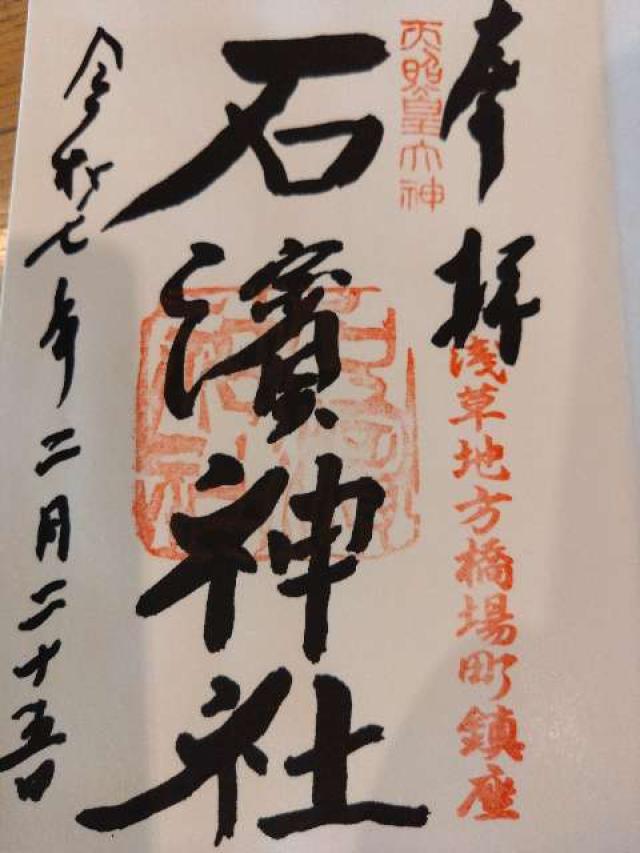 奉拝
天照皇大神
浅草地方橋場町鎮座
石濱神社
令和七年二月二十五日